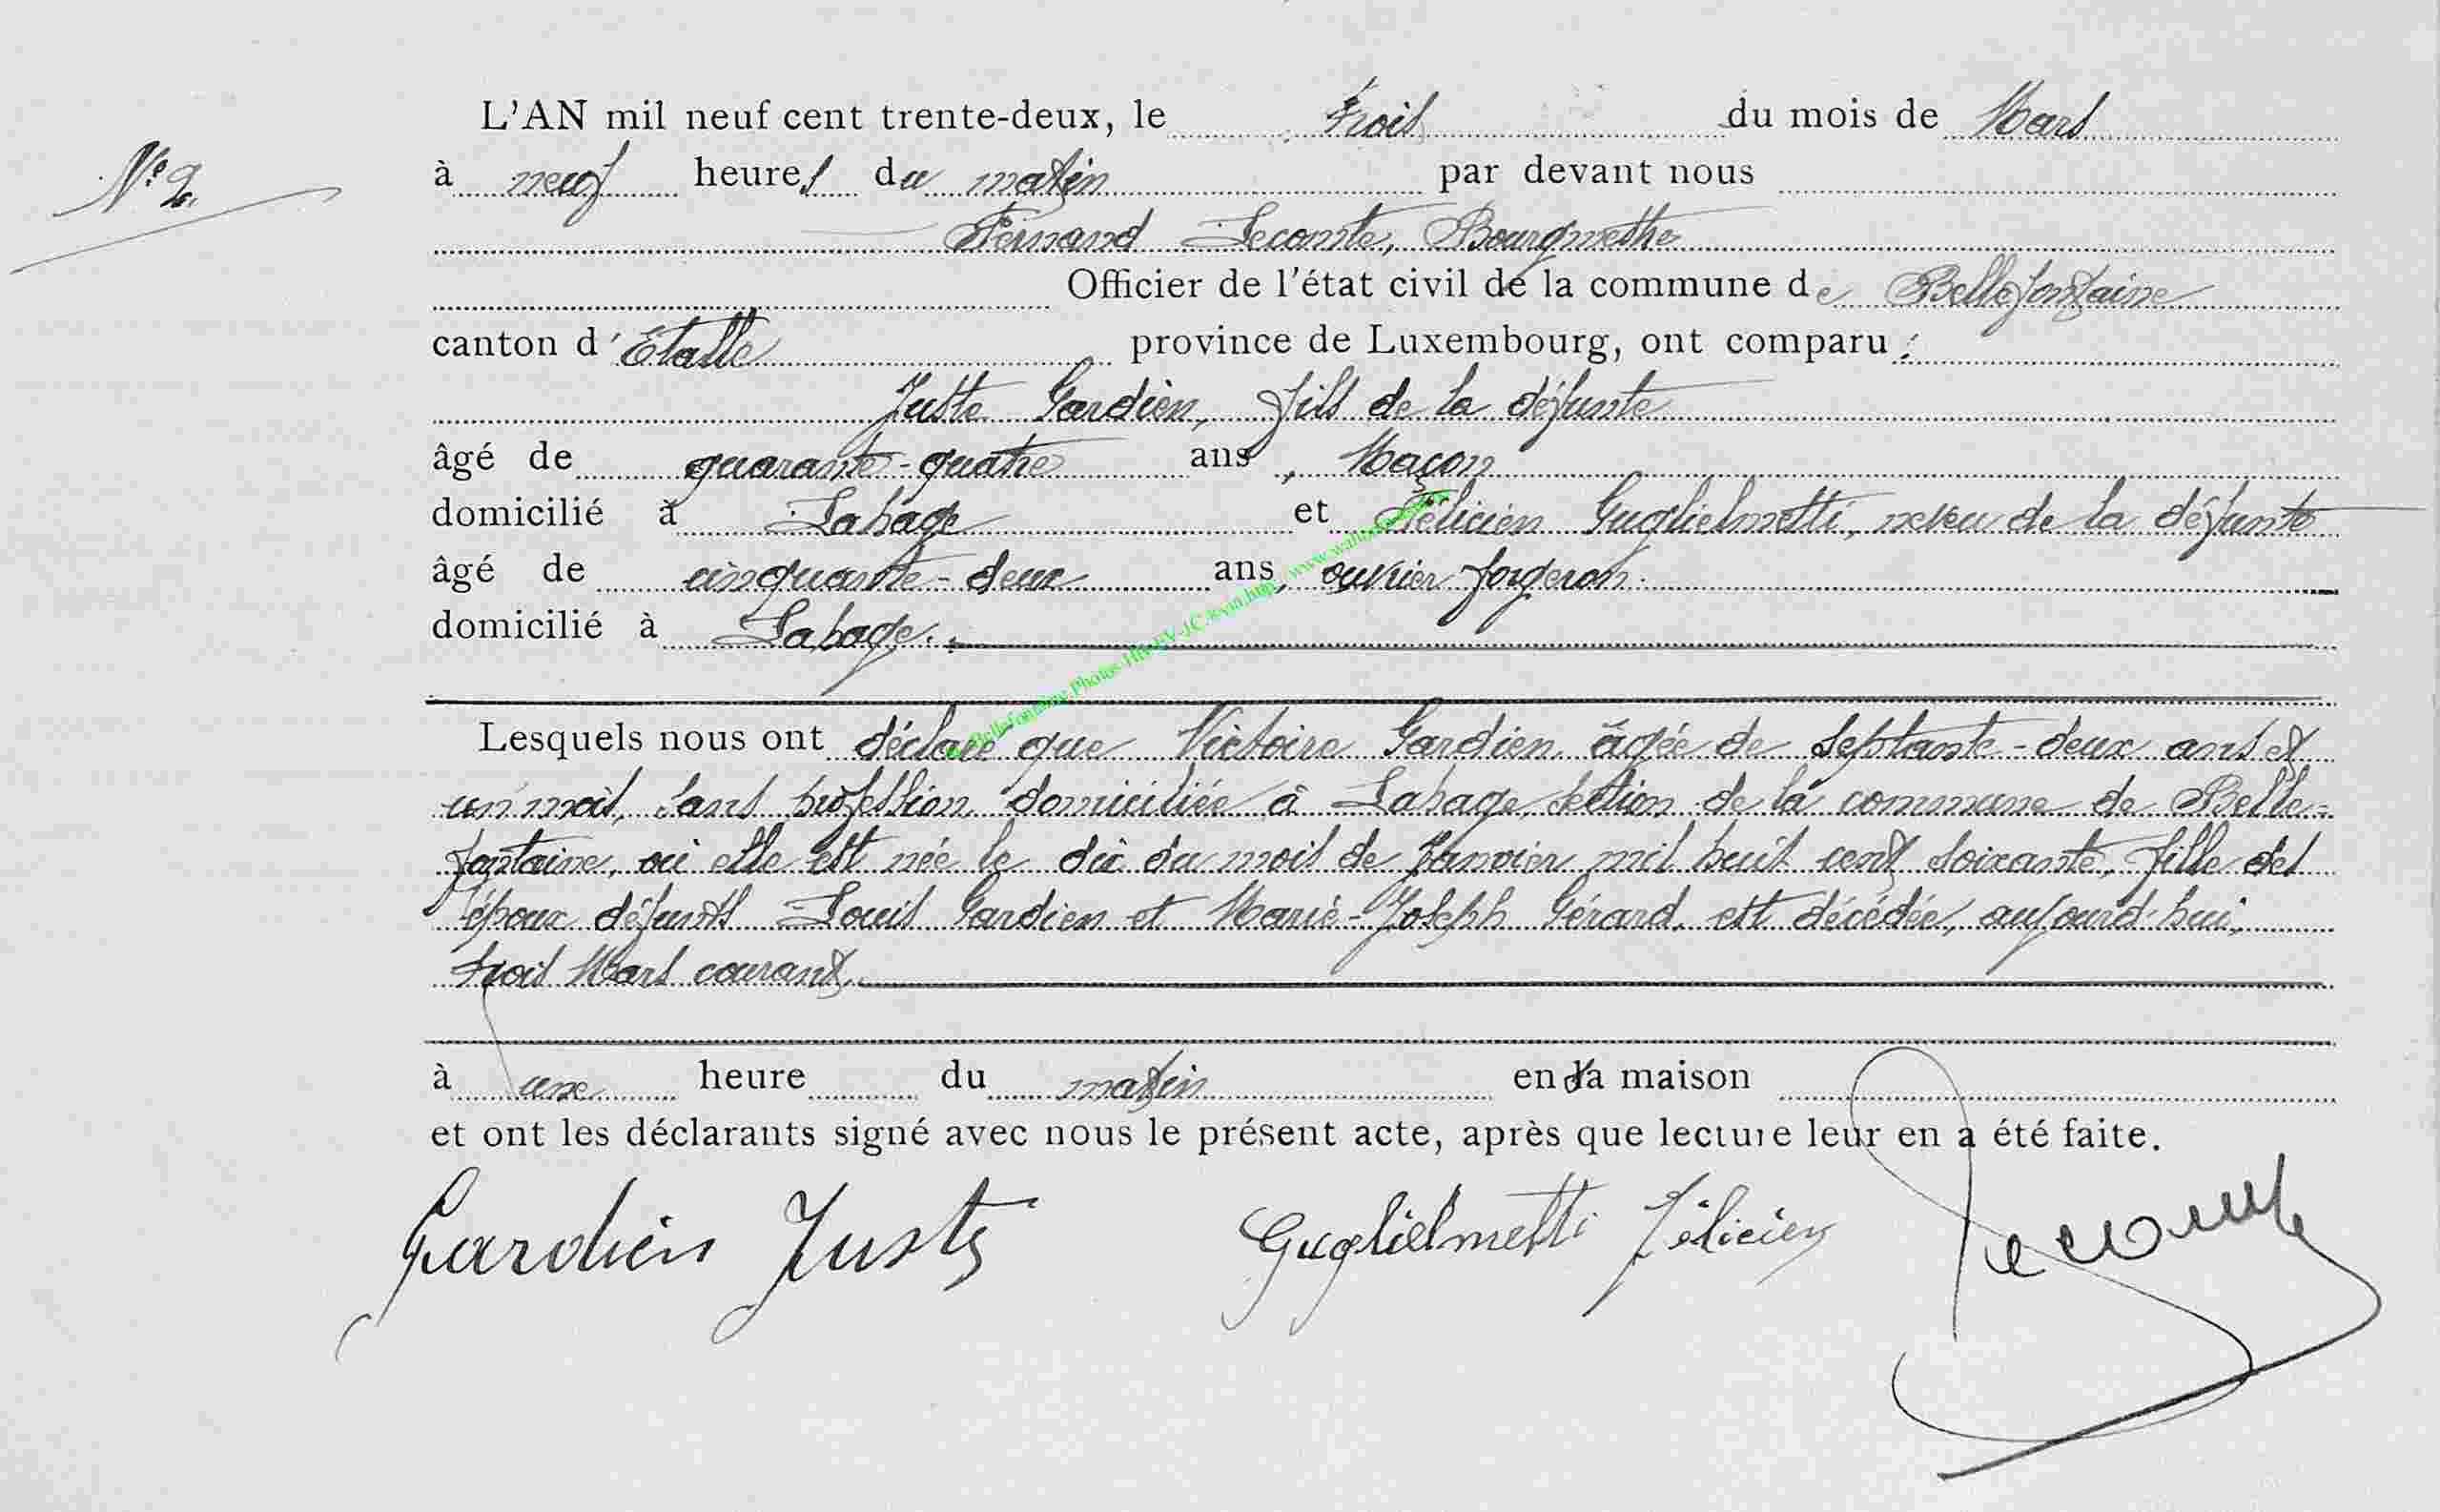 L'AN mil neuf cent trente-deux, le trois du mois de Mars
N° 2.
à neuf heures du matin par devant nous
Fernand Lecomte, Bourgmestre
Officier de l'état civil de la commune de Bellefontaine
canton d'Etalle province de Luxembourg, ont comparu :
Juste Gardien, fils de la défunte
âgé de quarante-quatre ans, Maçon
domicilié à Lahage et Félicien Guglielmetti, neveu de la défunte
âgé de cinquante-deux ans, ouvrier forgeron.
domicilié à Lahage.
Lesquels nous ont déclaré que Victoire Gardien, âgée de septante-deux ans et
un mois, sans profession, domiciliée à Lahage, section de la commune de Belle-
fontaine, où elle est née le dix du mois de Janvier mil huit cent soixante, fille des
époux défunts Louis Gardien et Marie-Joseph Gérard, est décédée, aujourd'hui,
trois Mars courant,
à une heure du matin en sa maison
et ont les déclarants signé avec nous le présent acte, après que lecture leur en a été faite.
Gardien Juste Guglielmetti Félicien Lecomte